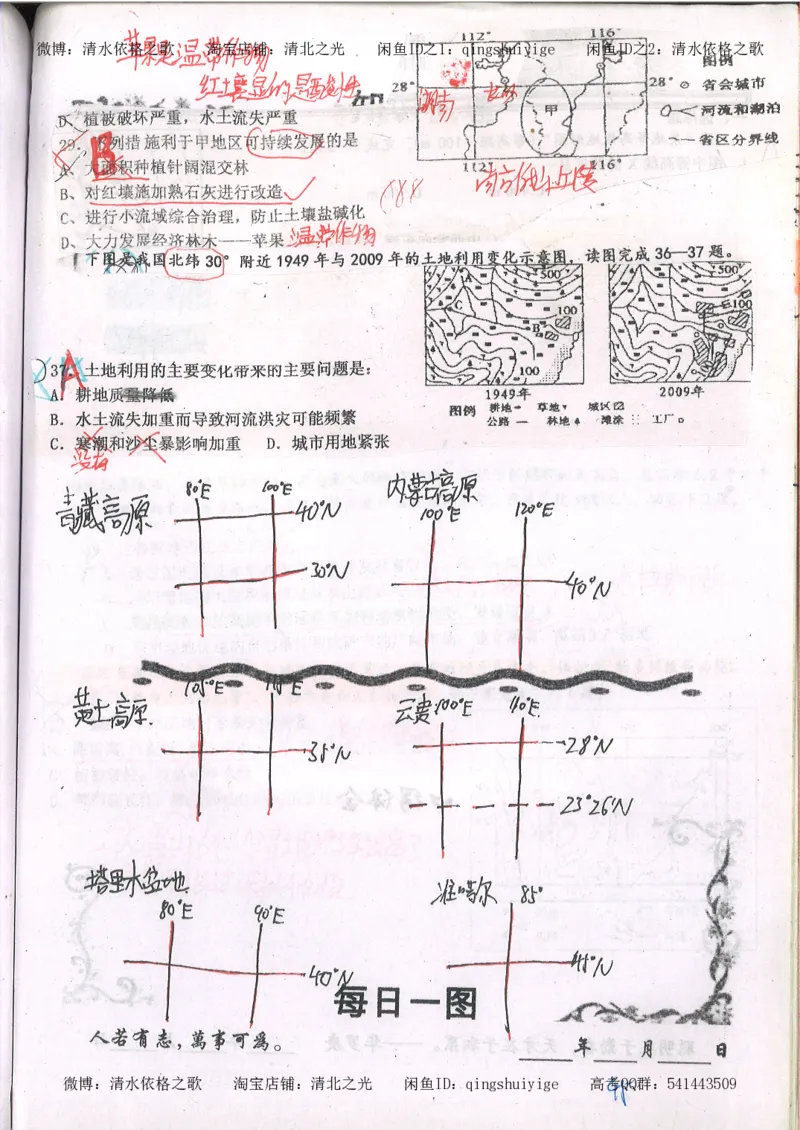 微博：清水依格之歌 淘宝店铺：清北之光 闲鱼ID之1：qingshuiyige 闲鱼ID之2：清水依格之歌
苹果是温带作物
红土壤显的是酸性
112° 116°
28° 28°
甲
112° 116°
图例
省会城市
河流和湖泊
省区分界线
D、植被破坏严重，水土流失严重
29．下列措施利于甲地区可持续发展的是
B
A、大面积种植针阔混交林
B、对红壤施加熟石灰进行改造
C、进行小流域综合治理，防止土壤盐碱化
D、大力发展经济林木——苹果 温带作物
南方低山丘陵
下图是我国北纬30°附近1949年与2009年的土地利用变化示意图，读图完成36—37题。
500 A C 100 B 100
500 100
1949年 2009年
图例 耕地 草地 城区
公路 林地 滩涂 工厂
37．土地利用的主要变化带来的主要问题是：
A
A．耕地质量降低
B．水土流失加重而导致河流洪灾可能频繁
C．寒潮和沙尘暴影响加重 D．城市用地紧张
青藏高原 80°E 100°E 40°N 30°N
内蒙古高原 100°E 120°E 40°N
黄土高原 105°E 110°E 35°N
云贵 100°E 110°E 28°N 23°26′N
塔里木盆地 80°E 90°E 40°N
准噶尔 85° 45°N
每日一图
人若有志，萬事可為。
年 月 日
微博：清水依格之歌 淘宝店铺：清北之光 闲鱼ID：qingshuiyige 高考QQ群：541443509